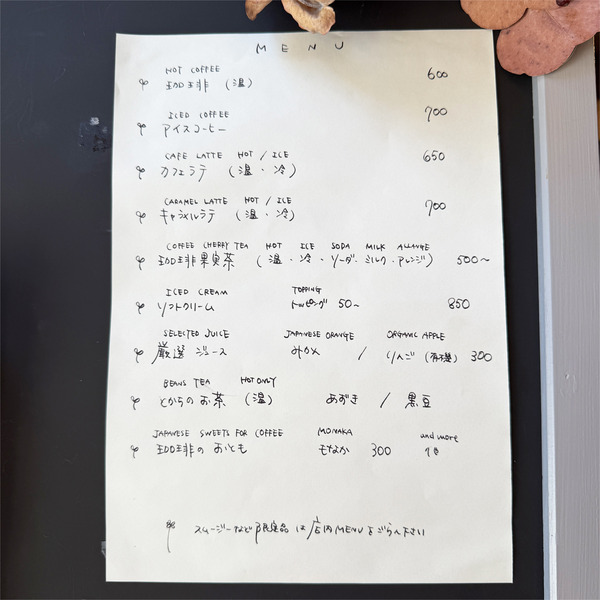 MENU
HOT COFFEE
珈琲 (温) 600
ICED COFFEE
アイスコーヒー 700
CAFE LATTE HOT / ICE
カフェラテ (温・冷) 650
CARAMEL LATTE HOT / ICE
キャラメルラテ (温・冷) 700
COFFEE CHERRY TEA HOT ICE SODA MILK ALLANGE
珈琲果実茶 (温・冷・ソーダ・ミルク・アレンジ) 500〜
ICED CREAM TOPPING
ソフトクリーム トッピング 50〜 850
SELECTED JUICE JAPANESE ORANGE ORGANIC APPLE
厳選 ジュース みかん / りんご 300
BEANS TEA HOT ONLY
とからのお茶 (温) あずき / 黒豆
JAPANESE SWEETS FOR COFFEE MONAKA and more
珈琲のおとも もなか 300
スムージーなど限定品は店内MENUをごらん下さい